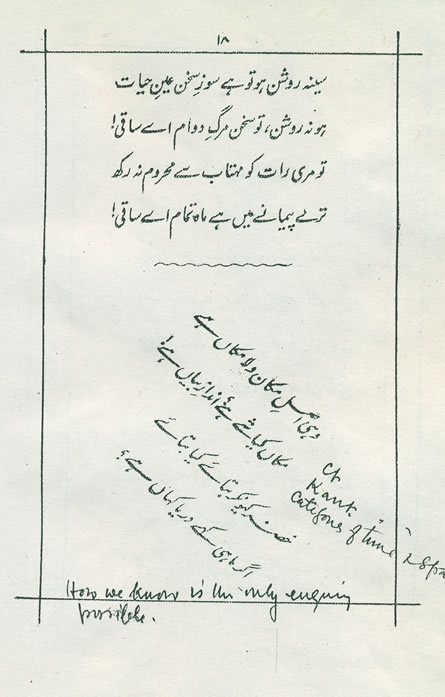 ۱۸
سینہ روشن ہو تو ہے سوزِ سخن عینِ حیات
ہو نہ روشن، تو سخن مرگِ دوام اے ساقی!
تو مری رات کو مہتاب سے محروم نہ رکھ
ترے پیمانے میں ہے ماہِ تمام اے ساقی!
وہی اصلِ مکان و لامکاں ہے
مکاں کیا شے ہے؟ اندازِ بیاں ہے!
خضر کیونکر بتائے کیا بتائے
اگر ماہی کہے دریا کہاں ہے؟
Cf
Kant.
Categories of time & Spa
How we know is the only enquiry
possible.